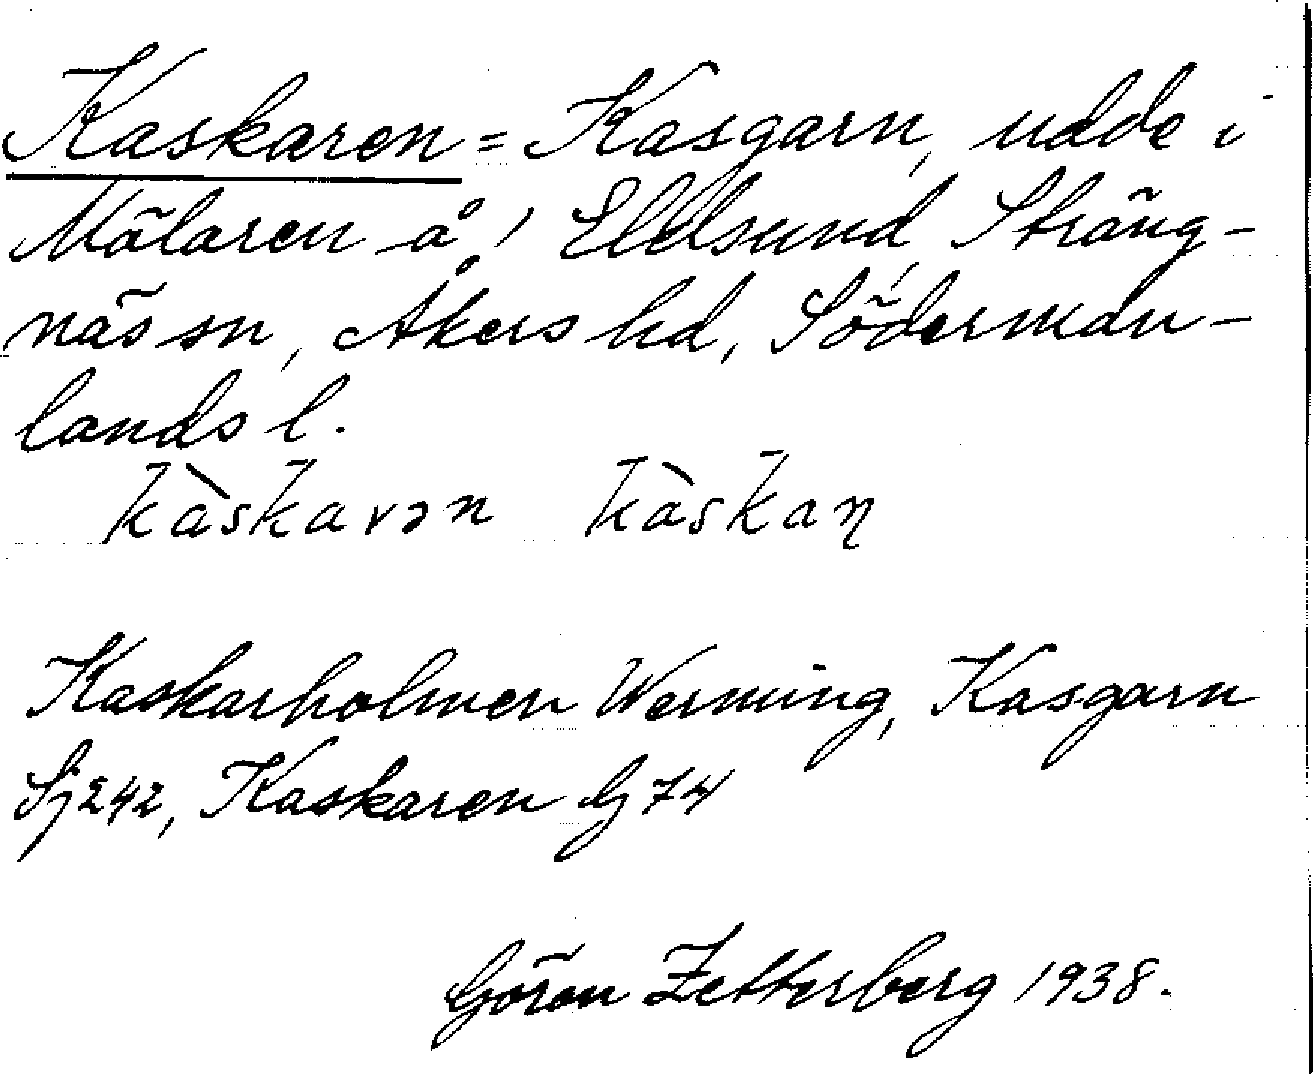 Kaskaren = Kasgarn, udde i
Mälaren å 1 Eldsund, Sträng-
näs sn, Åkers hd, Söderman-
lands l.
kàskarən kàskaɳ
Kaskarholmen Werming, Kasgarn
Sj 242, Kaskaren G 74
Göran Zetterberg 1938.